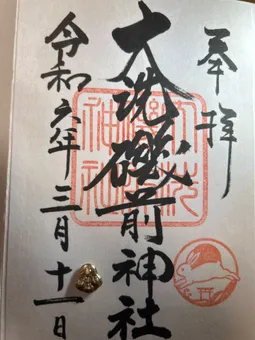 奉拝
大洗磯前神社
令和六年三月十一日